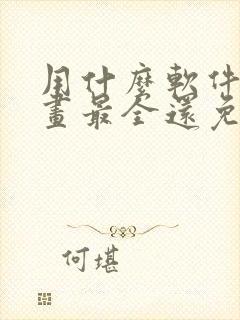 用什麼軟件
畫最全還免
何堪